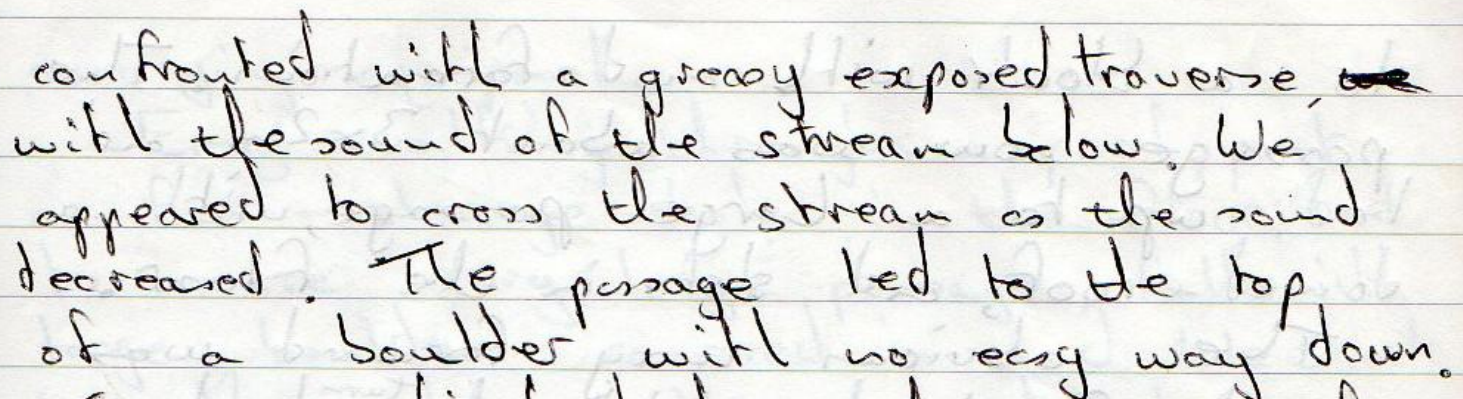 confronted with a greasy exposed traverse,
with the sound of the stream below. We
appeared to cross the stream as the sound
decreased. The passage led to the top
of a boulder with no easy way down.